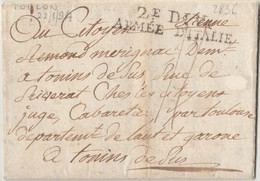 TOULON
2E DON
ARMÉE D'ITALIE
Au Citoyen Etienne
Remond merignac Demt
a tonins de Sus, Rue de
Rigerat Ches les citoyens
juge, Cabaretier, par toulouse
departement de laut et garone
a tonins de Sus